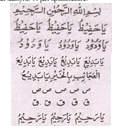 بسم الله الرحمن الرحيم
يا حفيظ يا حفيظ يا حفيظ
يا ودود يا ودود يا ودود
يا بديع يا بديع يا بديع
العجائب بالخير يا بديع
س س س س س
ق ق ق ق ق
يا رحيم يا رحيم يا رحيم